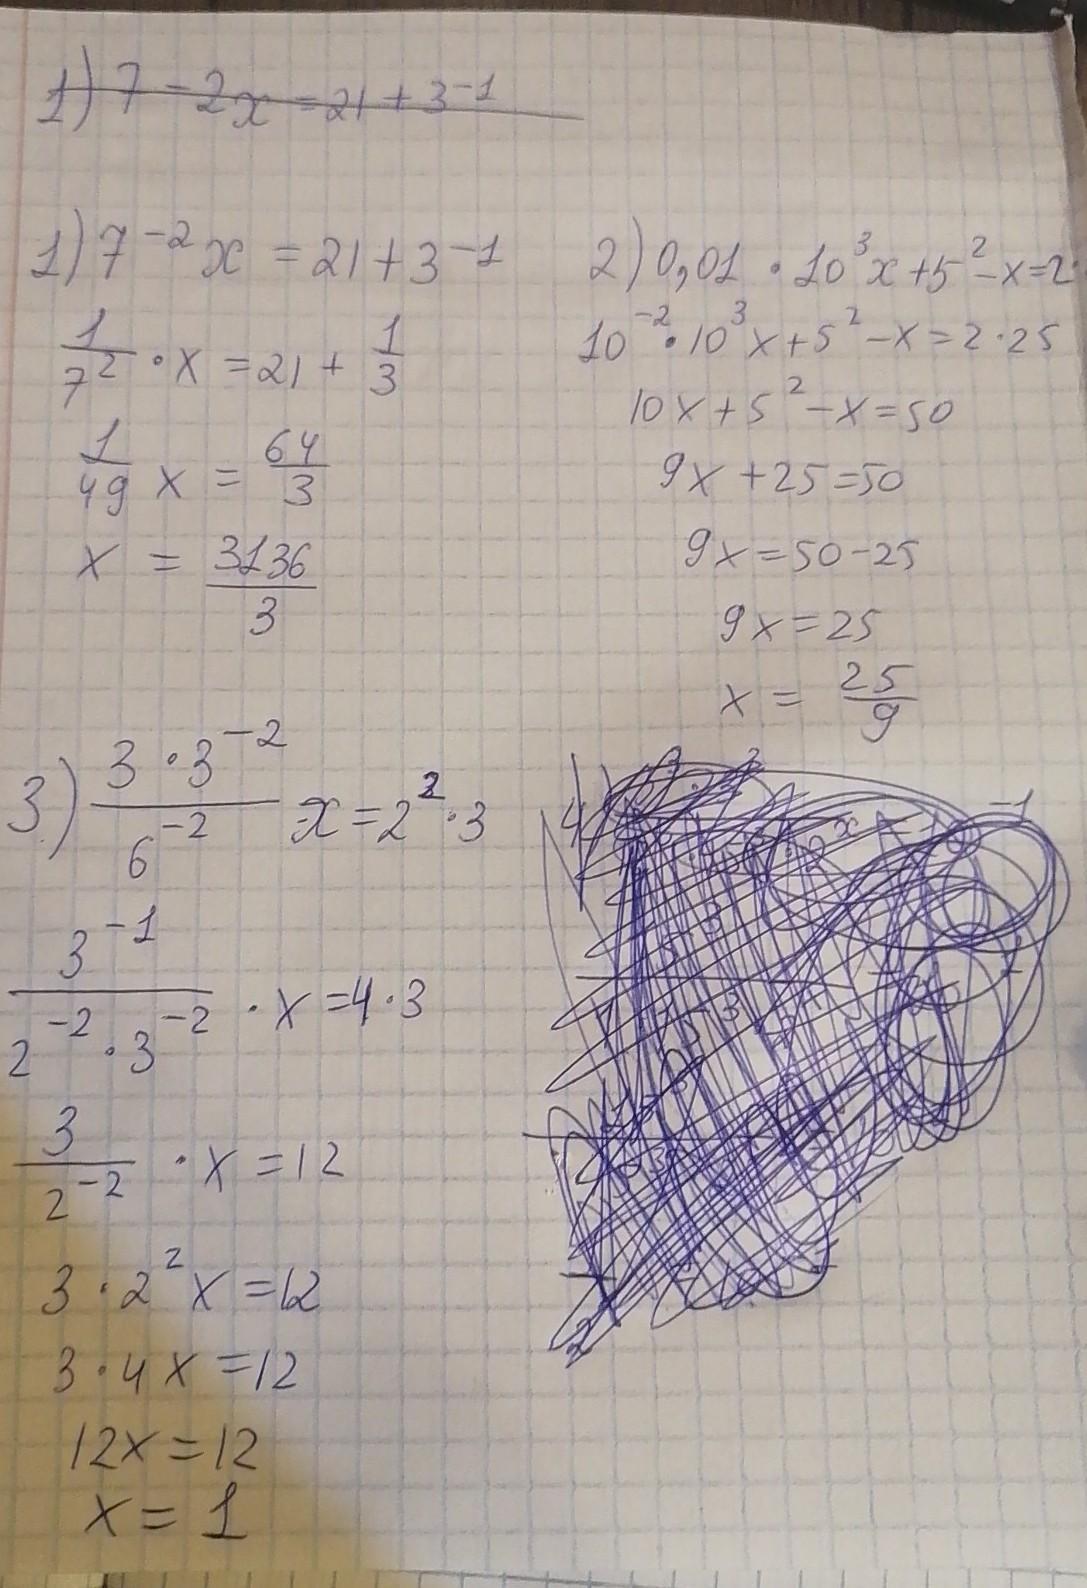 1) 7 - 2x = 21 + 3⁻¹
1) 7⁻²x = 21 + 3⁻¹
1/7² · x = 21 + 1/3
1/49 x = 64/3
x = 3136/3
2) 0,01 · 10³x + 5² - x = 2·
10⁻² · 10³x + 5² - x = 2 · 25
10x + 5² - x = 50
9x + 25 = 50
9x = 50 - 25
9x = 25
x = 25/9
3.) (3 · 3⁻²)/6⁻² x = 2² · 3
3⁻¹/(2⁻² · 3⁻²) · x = 4 · 3
3/2⁻² · x = 12
3 · 2² x = 12
3 · 4x = 12
12x = 12
x = 1